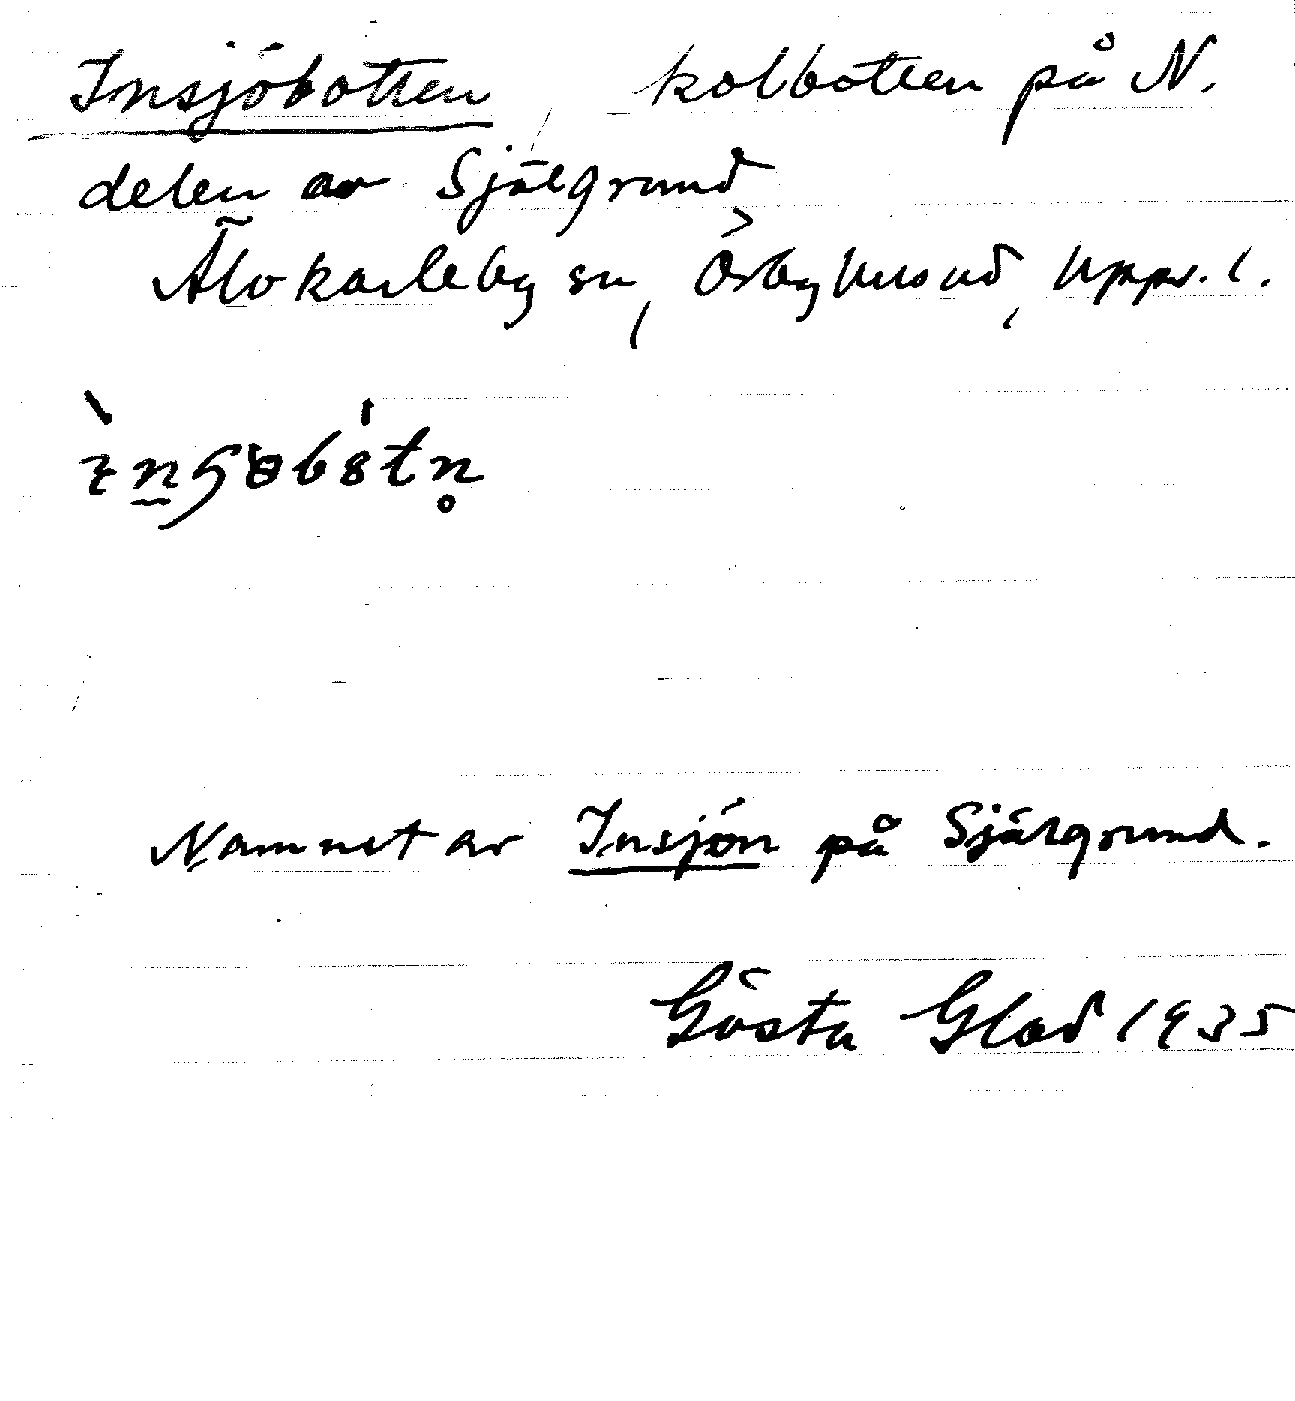 Insjöbotten kolbotten på N.
delen av Själgrund
Älvkarleby sn, Örbyhus hd, Uppl.
Namnet av Insjön på Själgrund.
Gösta Glad 1935